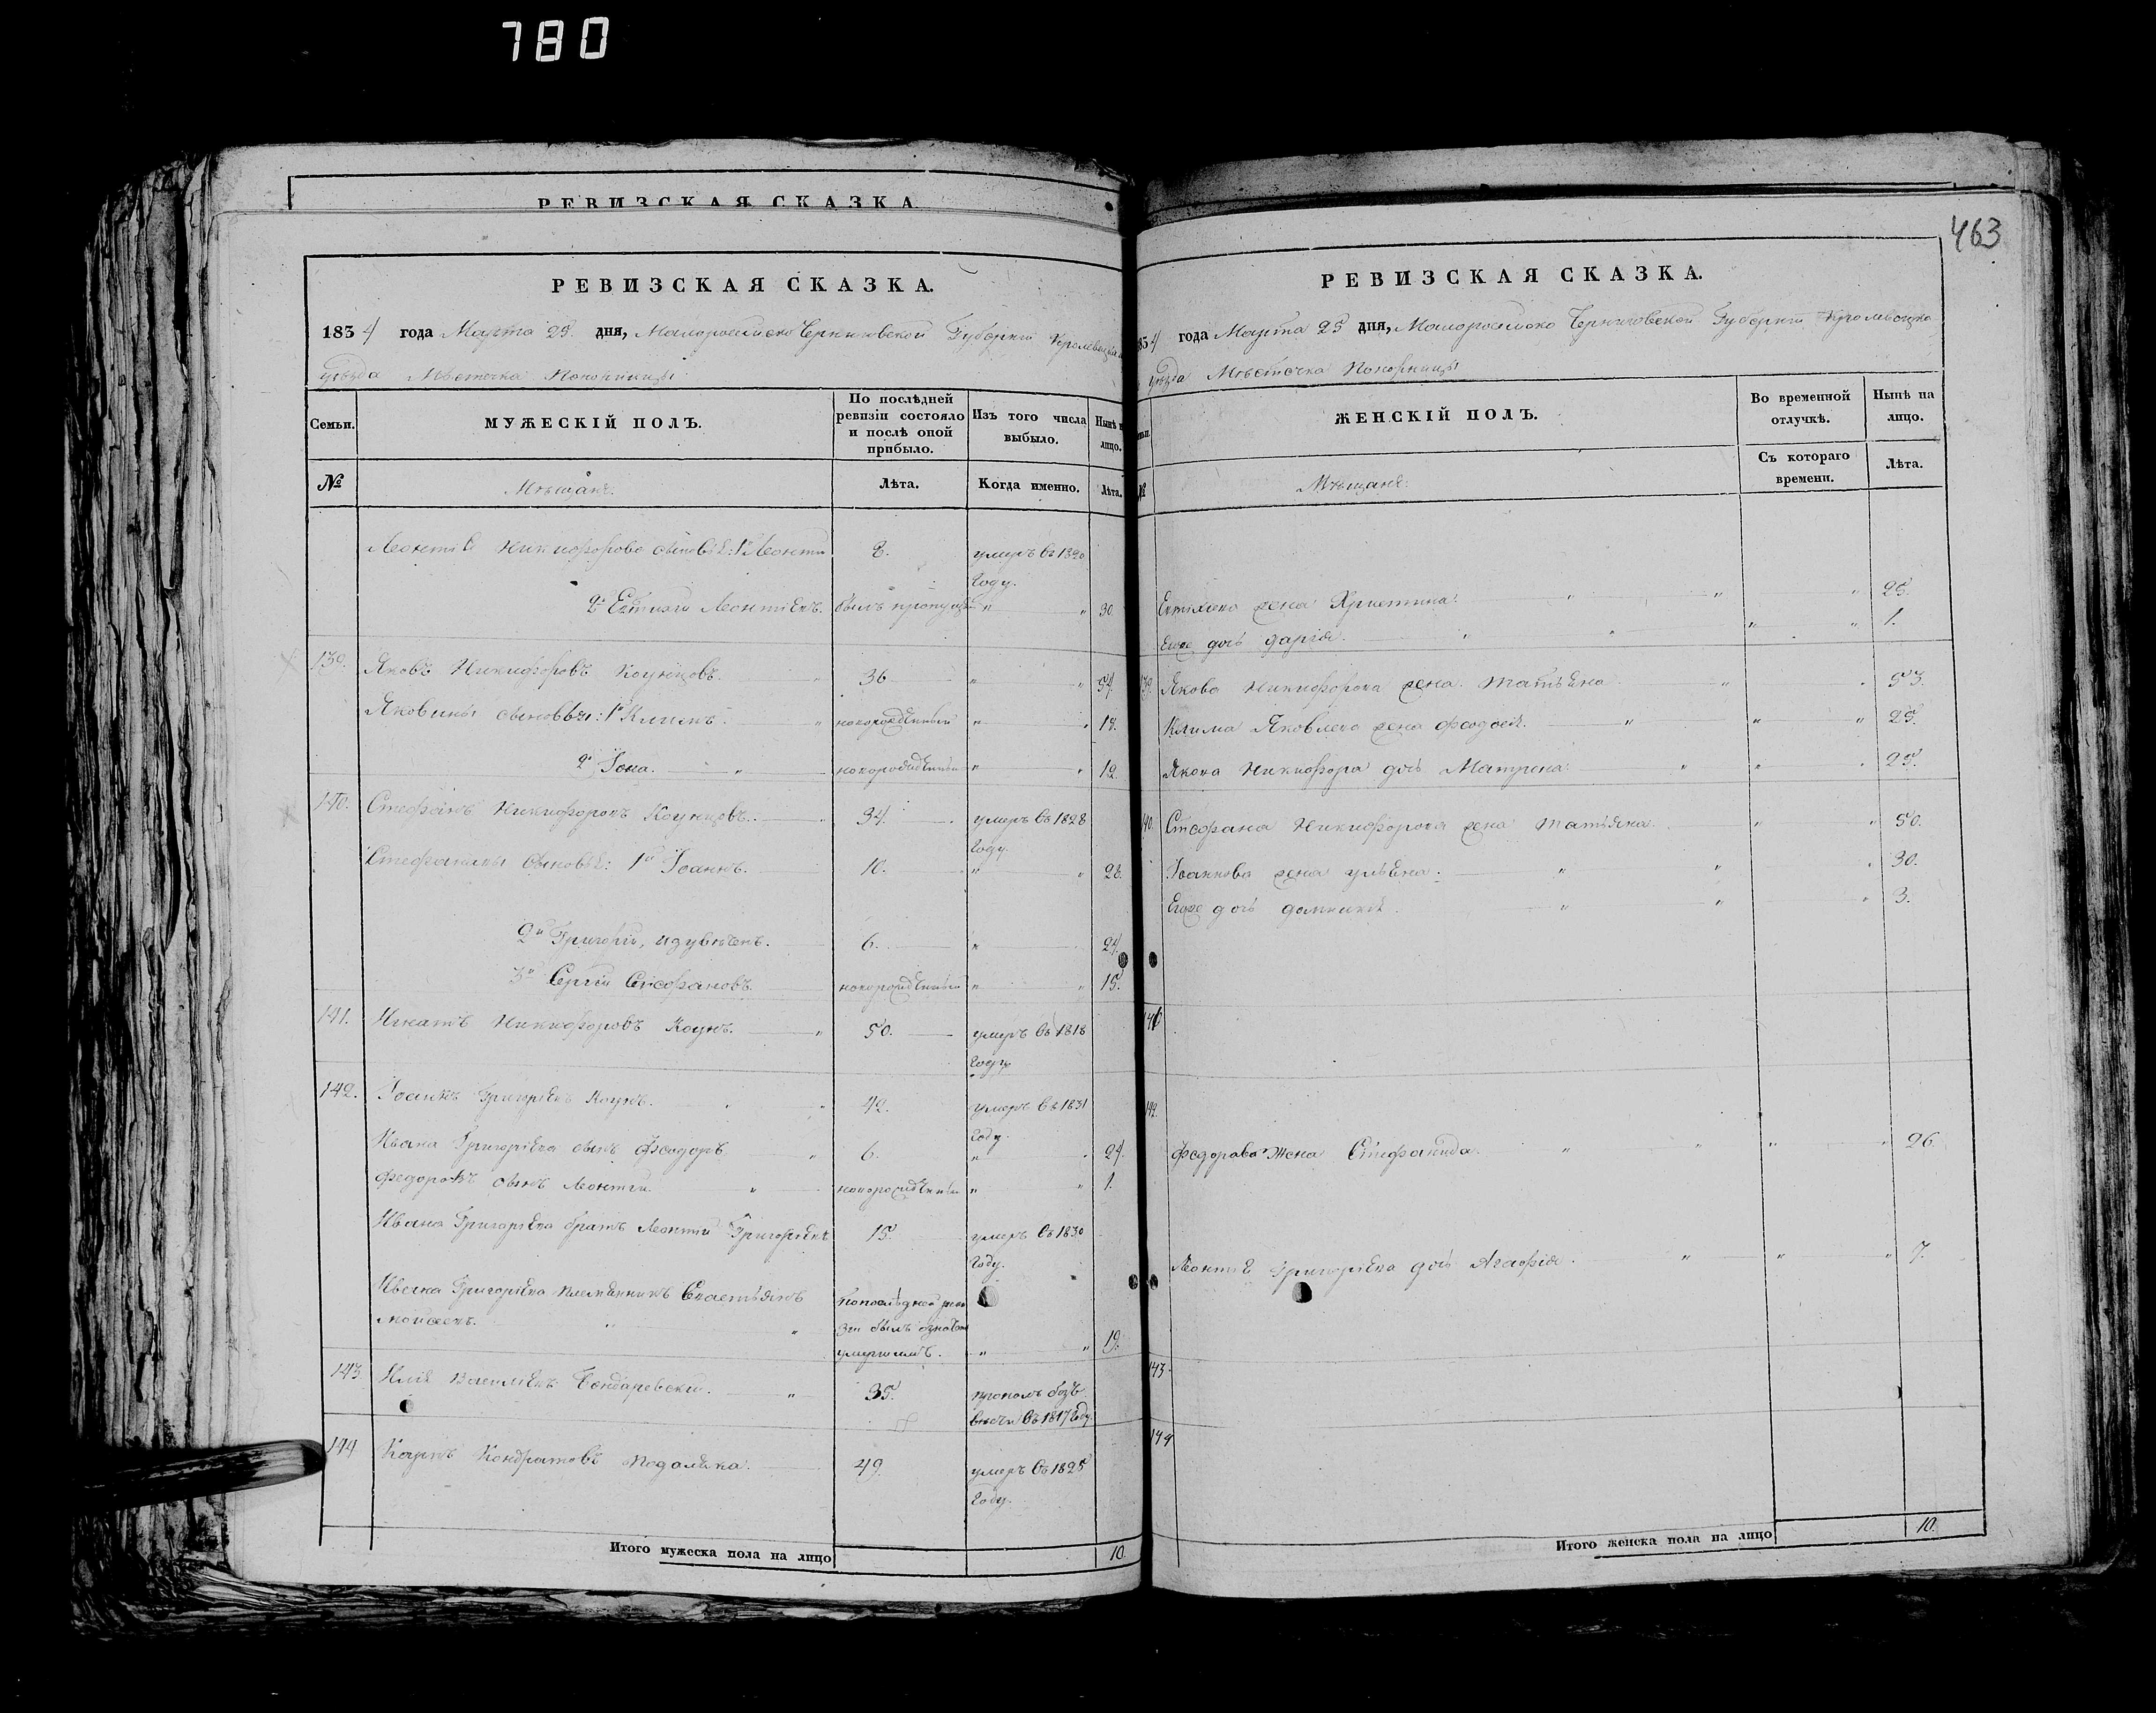 780
РЕВИЗСКАЯ СКАЗКА
463
РЕВИЗСКАЯ СКАЗКА.
1834 года Марта 25 дня, Малороссийско Черниговской Губернии Кролевецкаго
уезда Местечка Понорницы
Семьи.
МУЖЕСКІЙ ПОЛЪ.
По послѣдней ревизіи состояло и послѣ оной прибыло.
Изъ того числа выбыло.
Нынѣ на лицо.
№
Мѣщане.
Лѣта.
Когда именно.
Лѣта.
сыновья: 1й Леонтий 8. умеръ въ 1820
году.
былъ пропущ " " 30
139. Яковъ Никифоровъ 36 " " 54.
Яковины сыновья: 1й Климъ. " новорожденный " " 18.
2й Іона. " новорожденный " " 12.
140. Стефанъ Никифоровъ 34. умеръ въ 1828
году.
Стефановы сыновья: 1й Іоаннъ. 10. " " 28.
2й Григорій, 6. " 24.
3й Сергій Стефановъ. новорожденный " " 15.
141. Игнатъ Никифоровъ Коунъ. " 50. умеръ въ 1818
году
142. Іоаннъ Григорьевъ Коунъ. " " 42. умеръ въ 1831
году.
Ивана Григорьева сынъ Феодоръ " 6. " " 24.
Федоровъ сынъ Леонтий " новорожденный " " 1.
Ивана Григорьева братъ Леонтий Григорьевъ 15. умеръ въ 1830
году.
Ивана Григорьева племянникъ
Моисеевъ. " " умершимъ. " " 19.
143. Илія Васильевъ Бондаревский. " 35.
въ 1817 году.
144 Карпъ Кондратовъ Подоляка. 49. умеръ въ 1825
году.
Итого мужеска пола на лицо 10.
РЕВИЗСКАЯ СКАЗКА.
834 года Марта 25 дня, Малороссийско Черниговской Губернии Кролевецкаго
уезда Местечка Понорницы
ЖЕНСКІЙ ПОЛЪ.
Во временной отлучкѣ.
Нынѣ на лицо.
№
Мѣщане.
Съ котораго времени.
Лѣта.
жена Христина. " " " 25.
Еще дочь Дарія. " " " " 1.
139. Якова Никифорова жена Татьяна " " 53.
Клима Яковлева жена Феодосия. " " " 25.
Якова Никифора дочь Матрена " " " 25.
140. Стефана Никифорова жена Татьяна. " " 50.
Іоаннова жена Ульяна. " " " 30.
Еще дочь Домникия. " " " 3.
141
142.
Федорова жена Стефанида " " " " 26.
Леонтия Григорьева дочь Агафия. " " " 7.
143.
144
Итого женска пола на лицо 10.